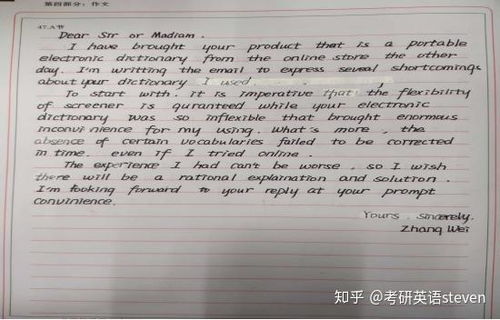 第四部分：作文
47.A节
Dear Sir or Madiam.
I have brought your product that is a portable
electronic dictionary from the online store the other
day. I'm writting the email to express seveal shortcomings
about your dictionary I used
To start with. it is imperative that the flexibility
of screener is quranteed while your electronic
dictionary was so inflexible that brought enormous
inconvinience for my using. What's more, the
absence of certain vocabularies failed to be corrected
in time. even if I tried online.
The experience I had can't be worse, so I wish
there will be a rational explaination and solution.
I'm fooking forward to your reply at your prompt
convinience.
Yours. sincerely.
Zhang Wei
知乎 @考研英语steven